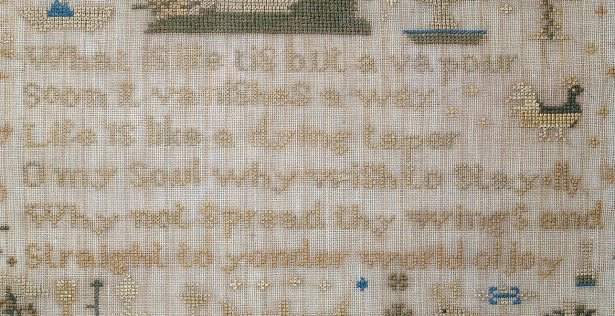 What is life tis but a vapour
Soon it vanishes a way
Life is like a dying taper
O my Soul why wish to Stay
Why not Spread thy wings and
Straight to yonder world of joy